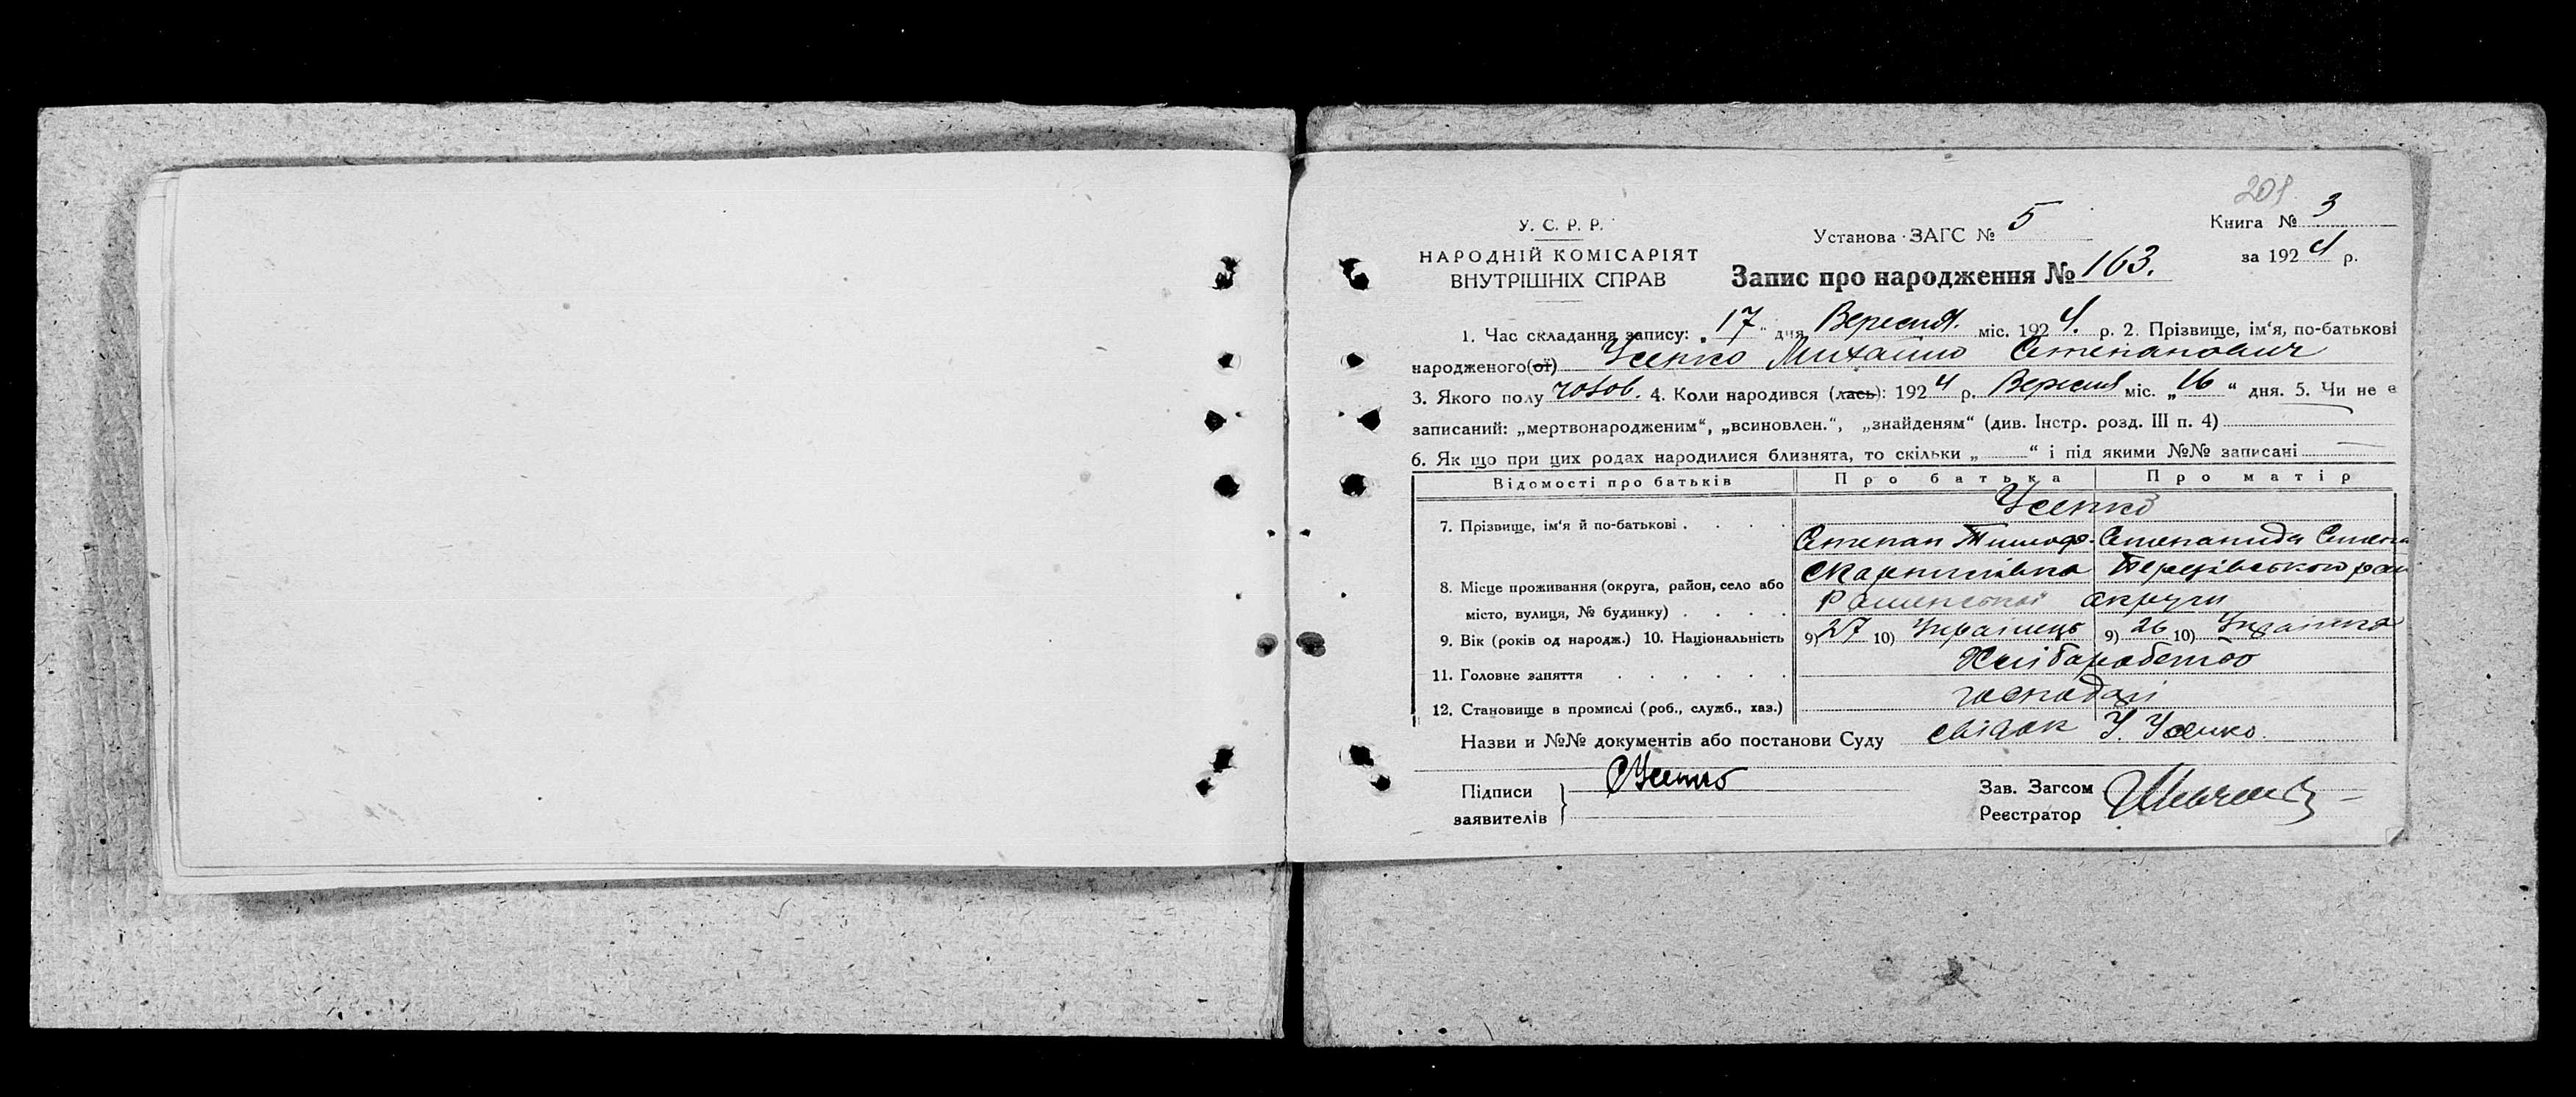 209
У. С. Р. Р.
НАРОДНІЙ КОМІСАРІЯТ
ВНУТРІШНІХ СПРАВ
Установа ЗАГС № 5
Книга № 3
за 1924 р.
Запис про народження № 163.
1. Час складання запису: „17“ дня Вересня. міс. 1924. р. 2. Прізвище, ім‘я, по-батькові
народженого(ої) Усенко Михайло Степанович
3. Якого полу чолов. 4. Коли народився (лась): 1924 р. Вересня міс. „16“ дня. 5. Чи не е
записаний: „мертвонародженим“, „всиновлен.“, „знайденям“ (див. Інстр. розд. III п. 4)
6. Як що при цих родах народилися близнята, то скільки „ “ і під якими №№ записані
Відомості про батьків Про батька Про матір
7. Прізвище, ім‘я й по-батькові . . . . Усенко
Степан Тимоф. Степанида Семен
8. Місце проживання (округа, район, село або
місто, вулиця, № будинку) . . . .
Роменської округи
9. Вік (років од народж.) 10. Національність 9) 27 10) Українець 9) 26 10) Українка
11. Головне заняття . . . . . . Хліборобство
12. Становище в промислі (роб., служб., хаз.) господарі
Назви и №№ документів або постанови Суду свідок У. Усенко.
Підписи
заявителів
СУсенко
Зав. Загсом
Реєстратор